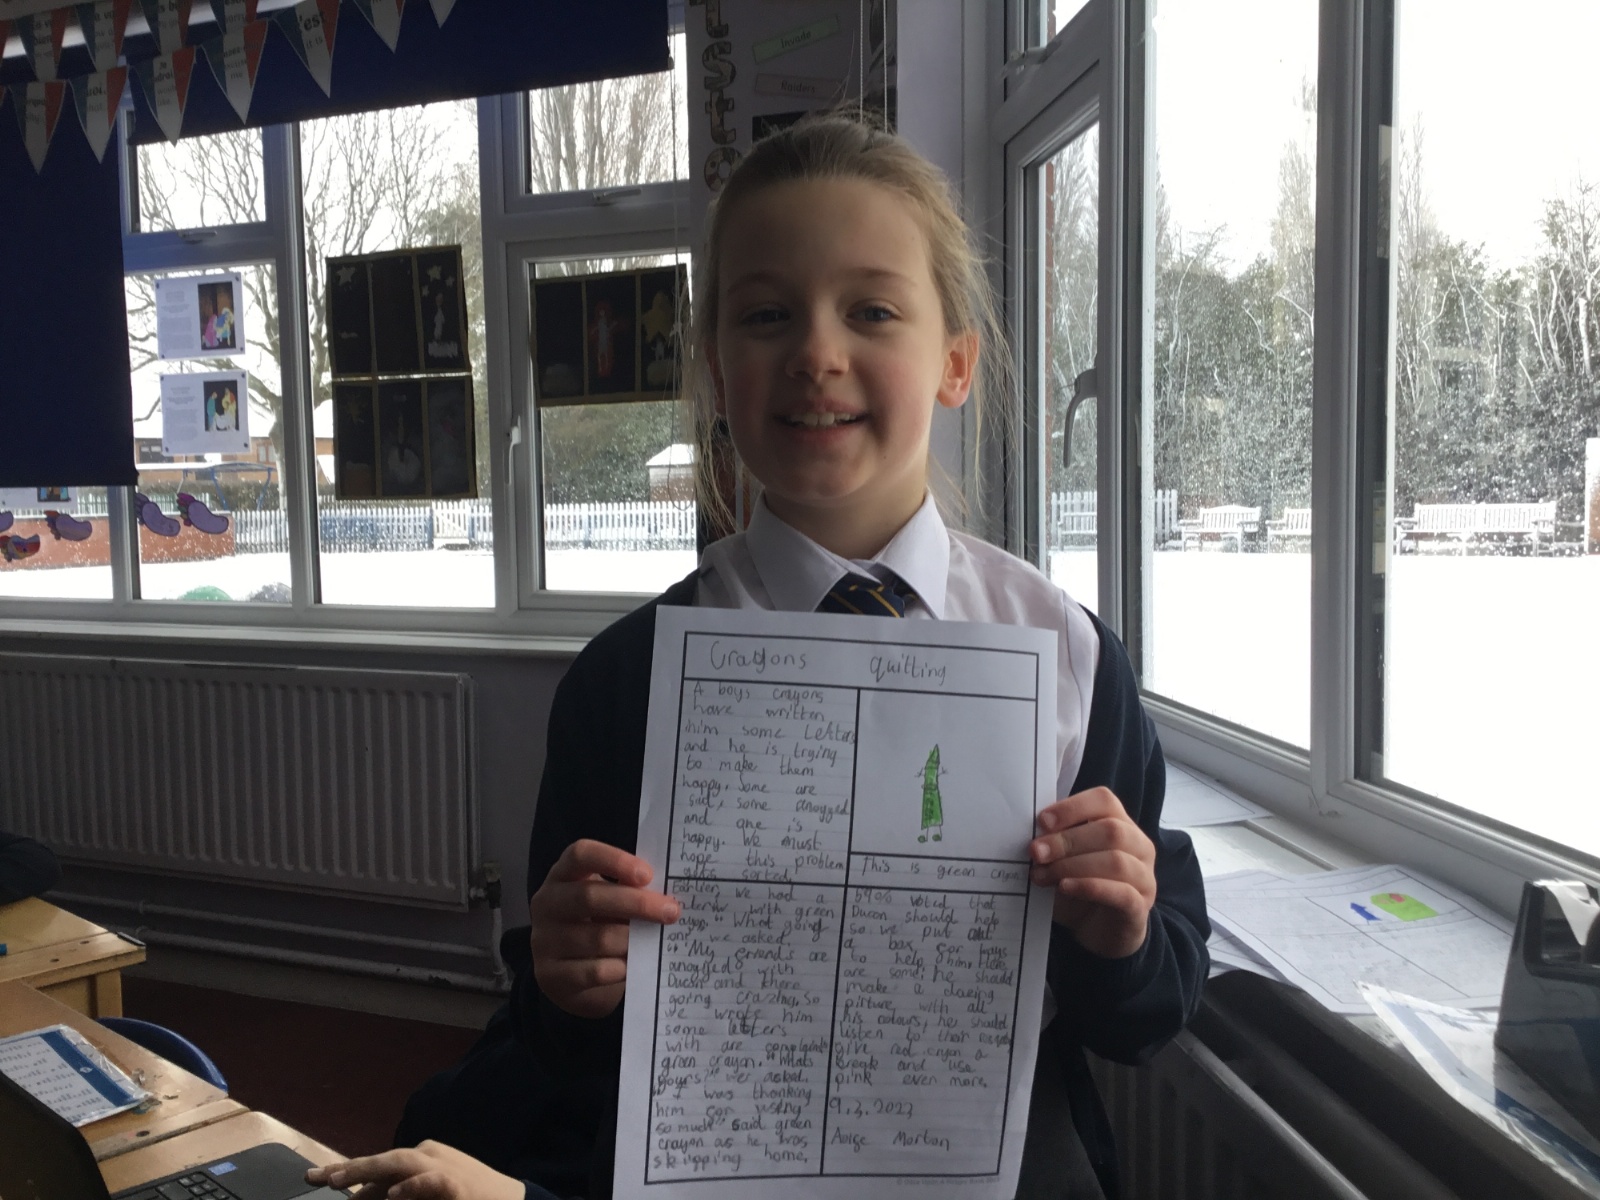 Invade
Raiders
Crayons quitting
A boys crayons
have written
him some letters
and he is trying
to make them
happy. Some are
sad, some anoyged
and one is
happy. We must
hope this problem
gets sorted.
This is green
Earlier we had a
with green
"What going
on" we asked.
"My friends are
anoyged with
Ducan and there
going crazing, so
we wrote him
some letters
with are complaints
green crayon. "Whats
yours" we asked.
"I was thanking
him for using
so much" said green
crayon as he was
skipping home.
59% voted that
Ducan should help
so we put out
a box for ways
to help him. Here
are some: he should
make a dazing
picture with all
his colours, he should
listen to their
give red cryon a
break and use
pink even more.
9.3.2023
Morton